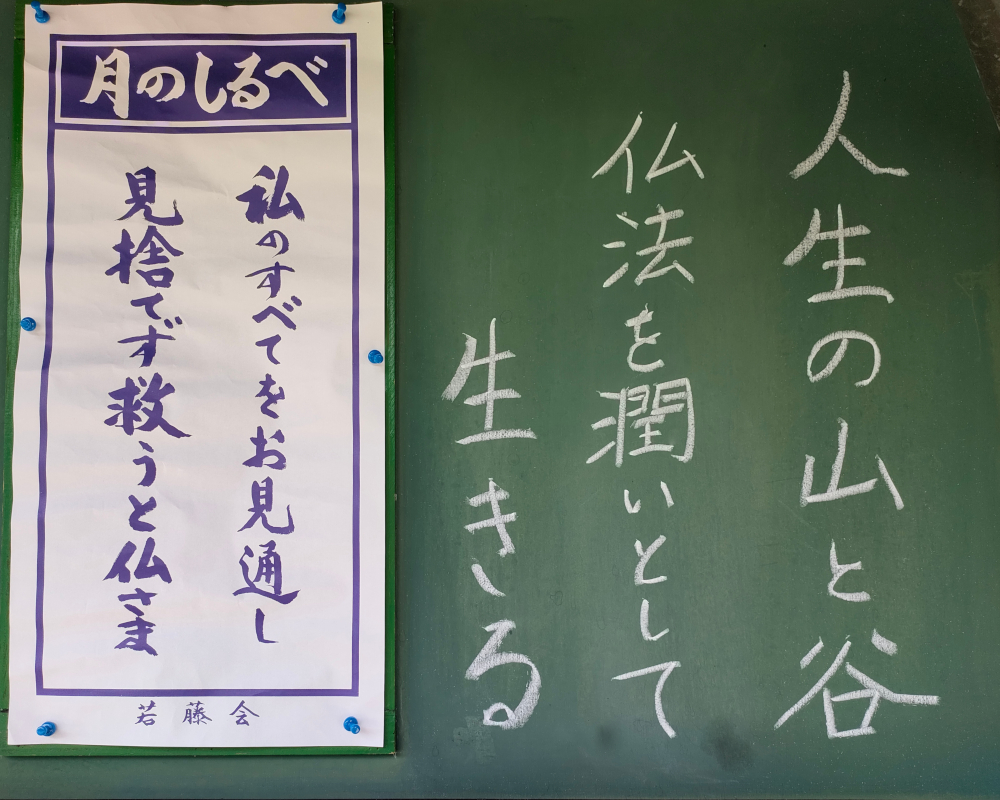 月のしるべ
私のすべてをお見通し
見捨てず救うと仏さま
若藤会
人生の山と谷
仏法を潤いとして
生きる